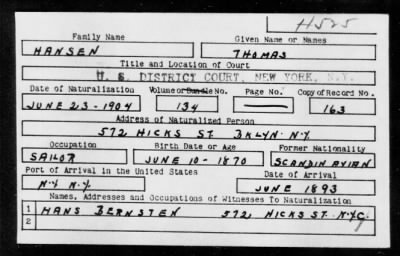 H525
Family Name Given Name or Names
HANSEN THOMAS
Title and Location of Court
U. S. DISTRICT COURT, NEW YORK, N.Y.
Date of Naturalization Volume or Bundle No. Page No. Copy of Record No.
JUNE 23-1904 134 — 163
Address of Naturalized Person
572 HICKS ST. BKLYN. N.Y.
Occupation Birth Date or Age Former Nationality
SAILOR JUNE 10-1870 SCANDINAVIAN
Port of Arrival in the United States Date of Arrival
N.Y. N.Y. JUNE 1893
Names, Addresses and Occupations of Witnesses To Naturalization
1 HANS BERNSTEN 572 HICKS ST. NYC.
2